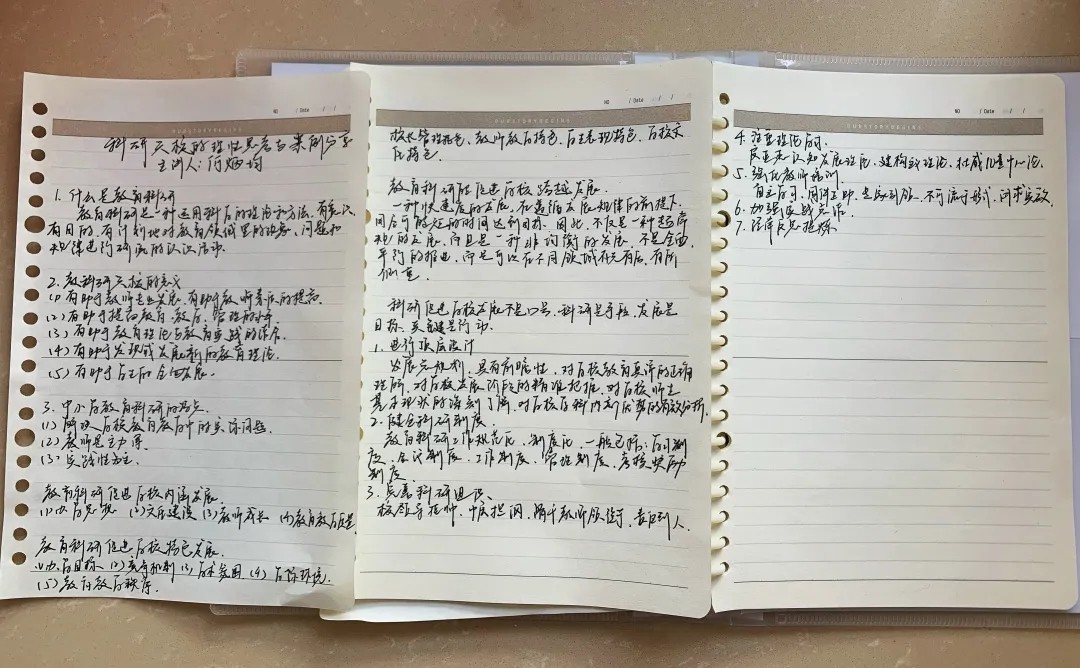 NO / Date / /
科研兴校的理性思考与案例分享
主讲人:
1. 什么是教育科研
教育科研是一种运用科学的理论和方法,有意识,
有目的,有计划地对教育领域里的现象、问题和
规律进行研究的认识活动.
2. 教科研兴校的意义
(1) 有助于教师专业发展,有助于教师素质的提高.
(2) 有助于提高教育、教学、管理的水平
(3) 有助于教育理论与教育实践的结合.
(4) 有助于发现或发展新的教育理论.
(5) 有助于学生的全面发展.
3. 中小学教育科研的特点
(1) 解决学校教育教学中的实际问题.
(2) 教师是主力军.
(3) 实践性为主.
教育科研促进学校内涵发展.
(1) 办学思想 (2) 文化建设 (3) 教师成长 (4) 教育教学质量
教育科研促进学校特色发展.
(1) 办学目标 (2) 教育机制 (3) 学术氛围 (4) 学习环境.
(5) 教育教学秩序.
NO / Date / /
校长管理特色、教师教学特色、学生表现特色、学校文
化特色.
教育科研能促进学校跨越发展.
一种快速度的发展,在遵循发展规律的前提下,
用尽可能短的时间达到目标. 因此,不仅是一种超常
规的发展,而且是一种非均衡的发展,不是全面,
平均的推进,而是可以在不同领域有先有后,有所
侧重.
科研促进学校发展不是口号. 科研是手段,发展是
目标,关键是行动.
1. 进行顶层设计
发展先规划,具有前瞻性,对学校教育真谛的正确
理解,对学校发展阶段的精准把握,对学校师生
基本现状的深刻了解,对学校学科内部优势的有效分析.
2. 健全科研制度.
教育科研工作规范化、制度化,一般包括:学习制
度、会议制度、工作制度、管理制度、考核奖励
制度.
3. 完善科研建设.
校领导挂帅,中层担纲,骨干教师领衔,责任到人.
NO / Date / /
4. 注重理论学习.
皮亚杰认知发展理论,建构主义理论,杜威儿童中心论.
5. 强化教师培训
自主学习,同伴互助,走出到外,不可流于形式,讲求实效.
6. 加强实践合作.
7. 注重反思提炼.